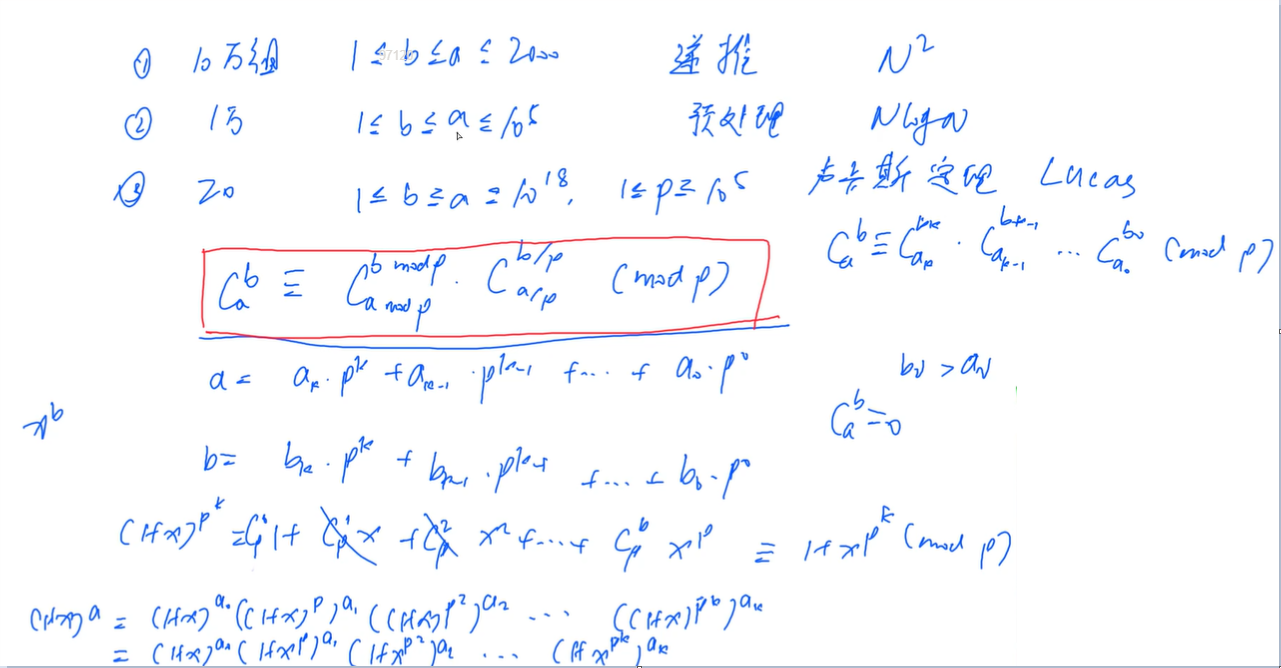 ① 10万组 1 ≤ b ≤ a ≤ 2000 递推 N²
② 1万 1 ≤ b ≤ a ≤ 10⁵ 预处理 NlogN
③ 20 1 ≤ b ≤ a ≤ 10¹⁸, 1 ≤ p ≤ 10⁵ 卢卡斯定理 Lucas
C_a^b ≡ C_{a_k}^{b_k} · C_{a_{k-1}}^{b_{k-1}} … C_{a_0}^{b_0} (mod p)
C_a^b ≡ C_{a mod p}^{b mod p} · C_{a/p}^{b/p} (mod p)
a = a_k · p^k + a_{k-1} · p^{k-1} + … + a_0 · p^0
x^b
C_a^b = 0
b = b_k · p^k + b_{k-1} · p^{k-1} + … + b_0 · p^0
≡ 1+x^{p^k} (mod p)
(1+x)^a = (1+x)^{a_0} ((1+x)^p)^{a_1} ((1+x)^{p^2})^{a_2} … ((1+x)^{p^k})^{a_k}
= (1+x)^{a_0} (1+x^p)^{a_1} (1+x^{p^2})^{a_2} … (1+x^{p^k})^{a_k}